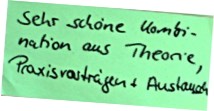 Sehr schöne Kombi-
nation aus Theorie,
Praxisvorträgen + Austausch